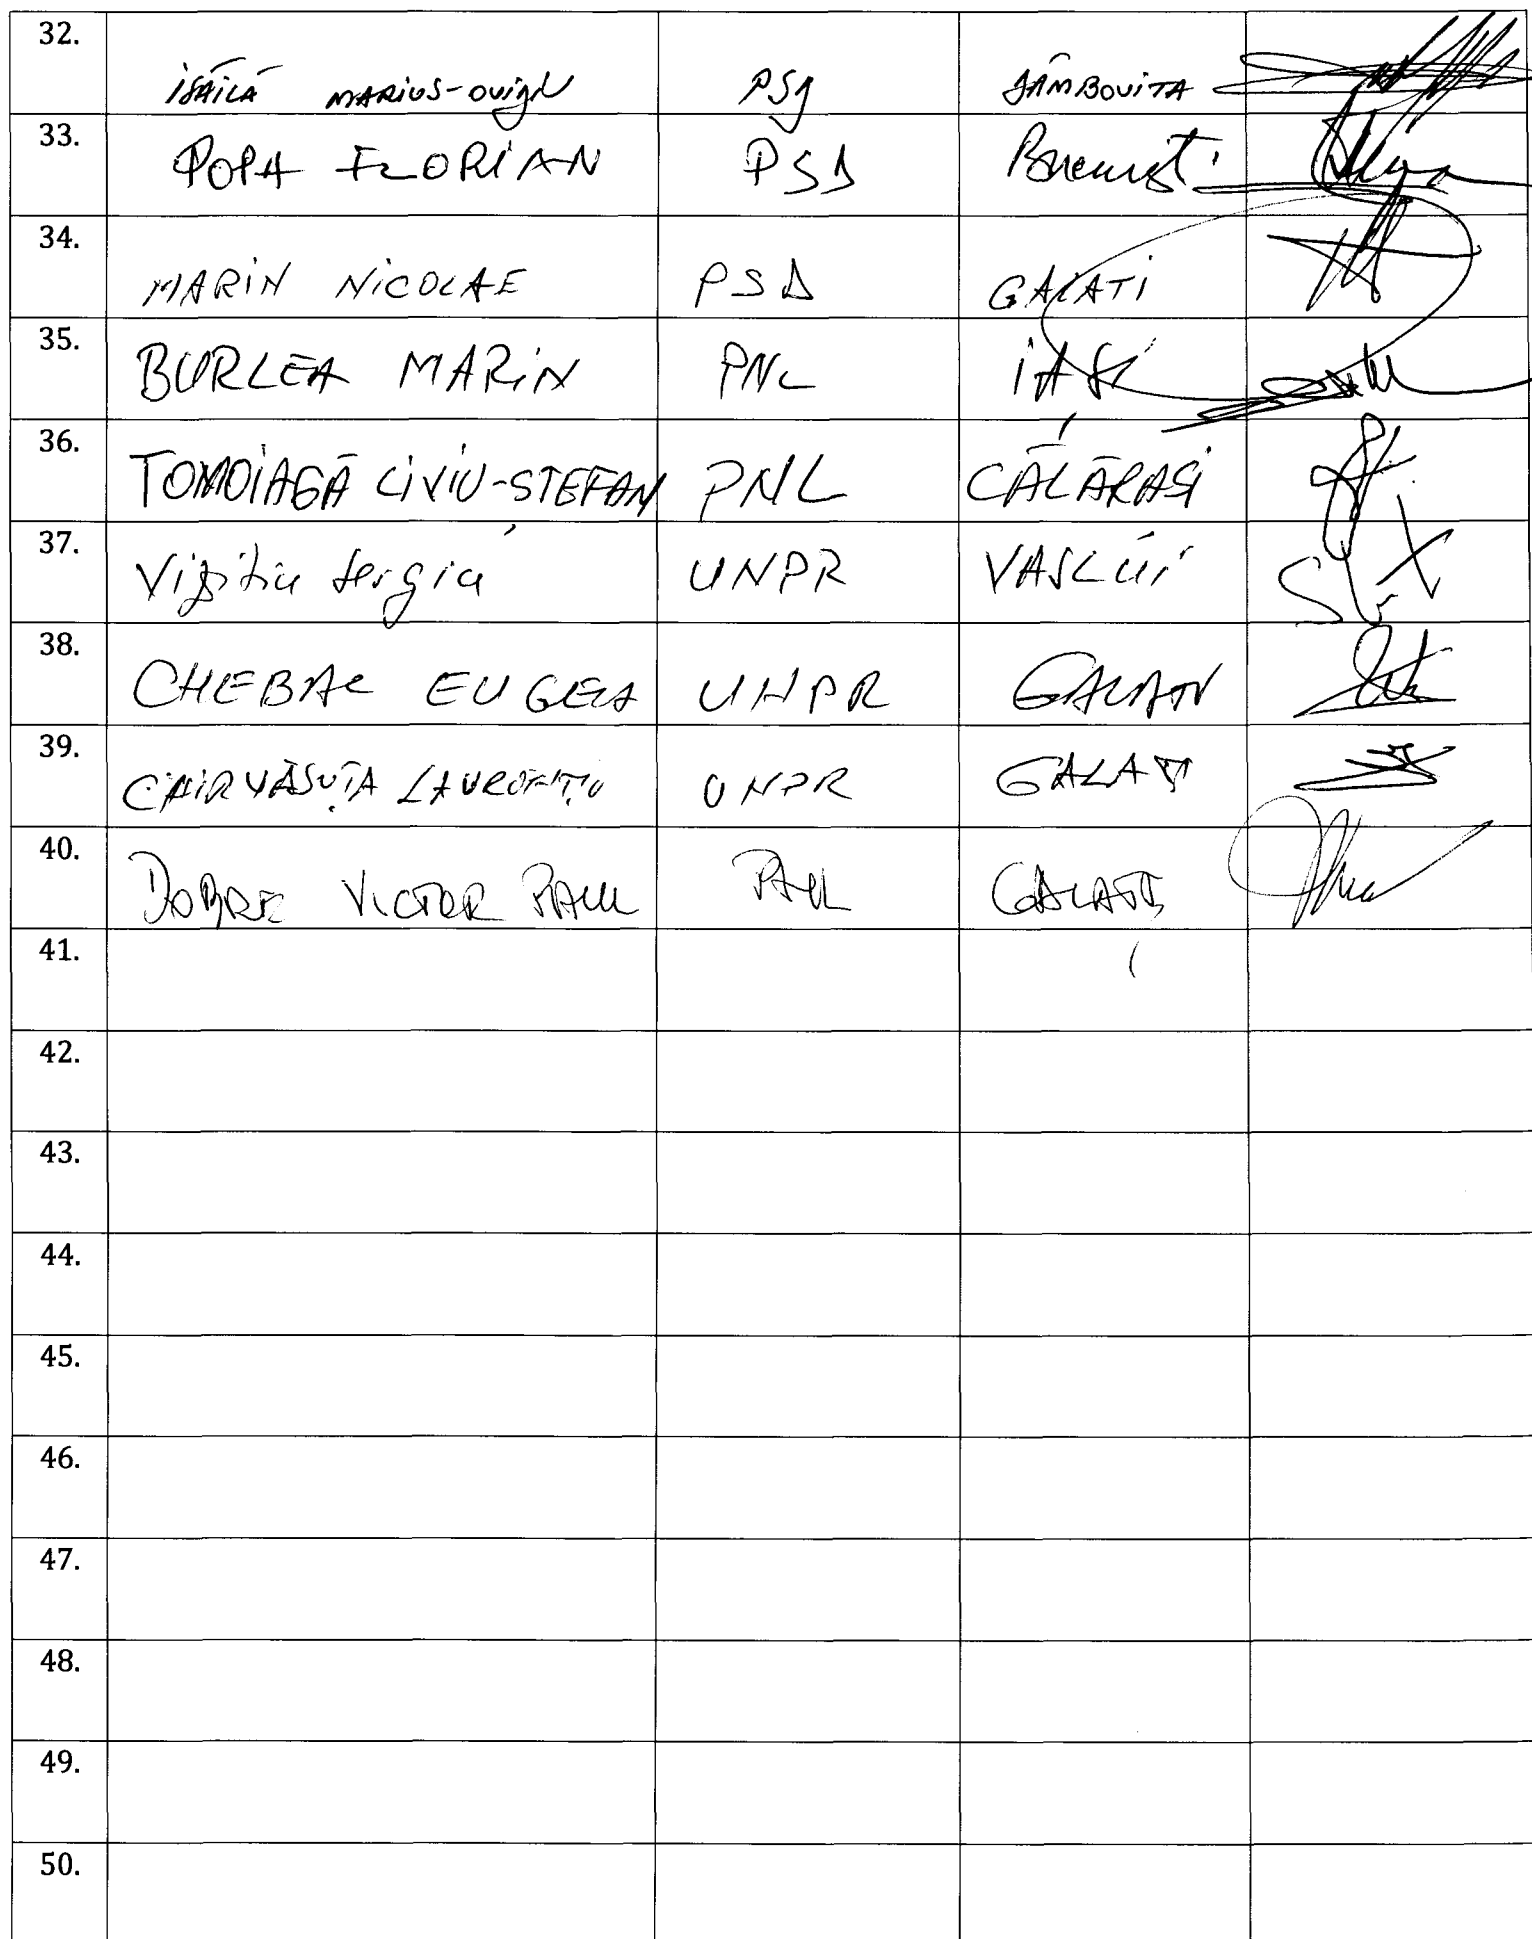 32. ISĂILĂ MARIUS-OVIDIU PSD DÂMBOVITA
33. POPA FLORIAN PSD București
34. MARIN NICOLAE PSD GALATI
35. BURLEA MARIN PNL IASI
36. TOMOIAGĂ LIVIU-ȘTEFAN PNL CĂLĂRAȘI
37. Vizitiu Sergiu UNPR VASLUI
38. CHEBAC EUGEN UNPR GALATI
39. CHIRVĂSUȚĂ LAURENȚIU UNPR GALAȚI
40. DOBRE VICTOR PAUL PNL GALAȚI
41.
42.
43.
44.
45.
46.
47.
48.
49.
50.